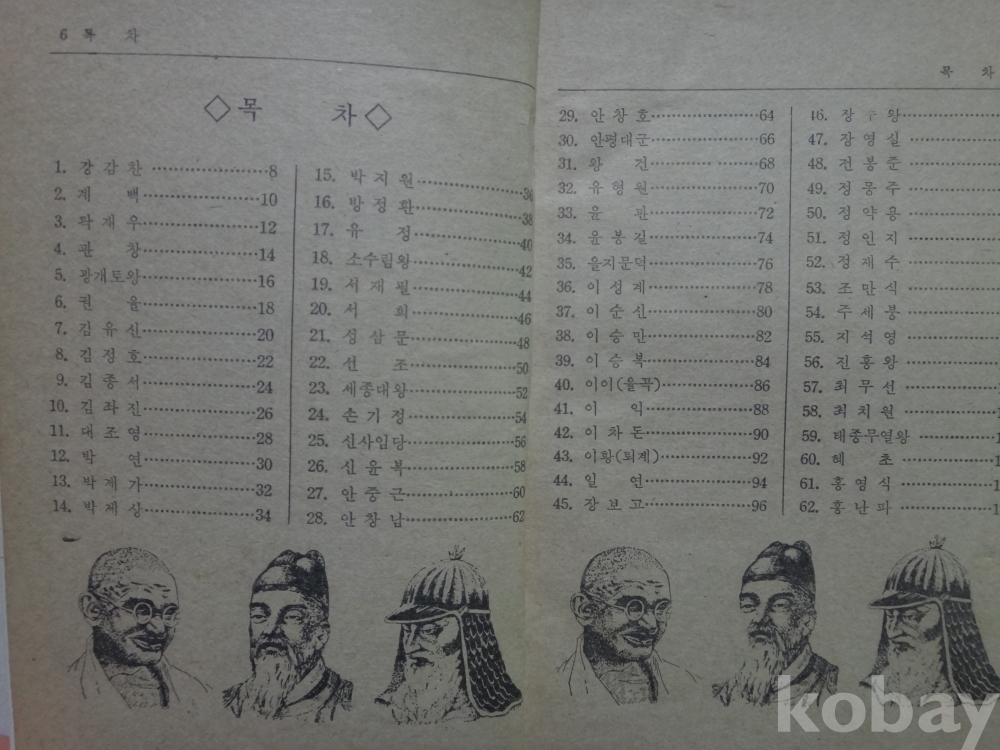 6 목 차
◇목 차◇
1. 강감찬 8
2. 계 백 10
3. 곽재우 12
4. 관 창 14
5. 광개토왕 16
6. 권 율 18
7. 김유신 20
8. 김정호 22
9. 김종서 24
10. 김좌진 26
11. 대조영 28
12. 박 연 30
13. 박제가 32
14. 박제상 34
15. 박지원 36
16. 방정환 38
17. 유 정 40
18. 소수림왕 42
19. 서재필 44
20. 서 희 46
21. 성삼문 48
22. 선 조 50
23. 세종대왕 52
24. 손기정 54
25. 신사임당 56
26. 신윤복 58
27. 안중근 60
28. 안창남 62
목 차
29. 안창호 64
30. 안평대군 66
31. 왕 건 68
32. 유형원 70
33. 윤 관 72
34. 윤봉길 74
35. 을지문덕 76
36. 이성계 78
37. 이순신 80
38. 이승만 82
39. 이승복 84
40. 이이(율곡) 86
41. 이 익 88
42. 이차돈 90
43. 이황(퇴계) 92
44. 일 연 94
45. 장보고 96
46. 장 왕
47. 장영실
48. 전봉준
49. 정몽주
50. 정약용
51. 정인지
52. 정재수
53. 조만식
54. 주세붕
55. 지석영
56. 진흥왕
57. 최무선
58. 최치원
59. 태종무열왕
60. 혜 초
61. 홍영식
62. 홍난파
kobay